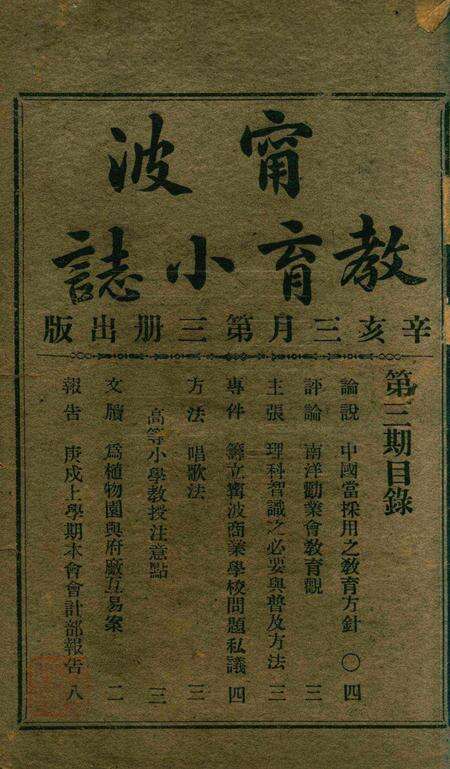 甯波
教育小誌
辛亥三月第三册出版
第三期目錄
論説 中國當採用之教育方針 〇四
評論 南洋勸業會教育觀 三
主張 理科智識之必要與普及方法 三
專件 籌立甯波商業學校問題私議 四
方法 唱歌法 三
高等小學教授注意點 三
文牘 爲植物園與府廠互易案 二
報告 庚戌上學期本會會計部報告 八